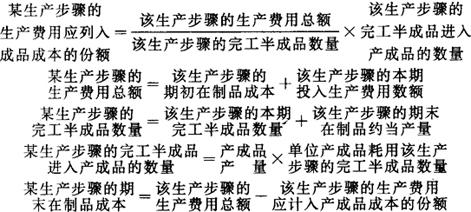 某生产步骤的 该生产步骤的生产费用总额 该生产步骤的
生产费用应列入=————————×完工半成品进入
成品成本的份额 该生产步骤的完工半成品数量 产成品的数量
某生产步骤的=该生产步骤的+该生产步骤的本期
生产费用总额 期初在制品成本 投入生产费用数额
某生产步骤的=该生产步骤的本期+该生产步骤的期末
完工半成品数量 完工半成品数量 在制品约当产量
某生产步骤的完工半成品=产成品×单位产成品耗用该生产
进入产成品的数量 产量 步骤的完工半成品数量
某生产步骤的期=该生产步骤的-该生产步骤的生产费用
末在制品成本 生产费用总额 应计入产成品成本的份额